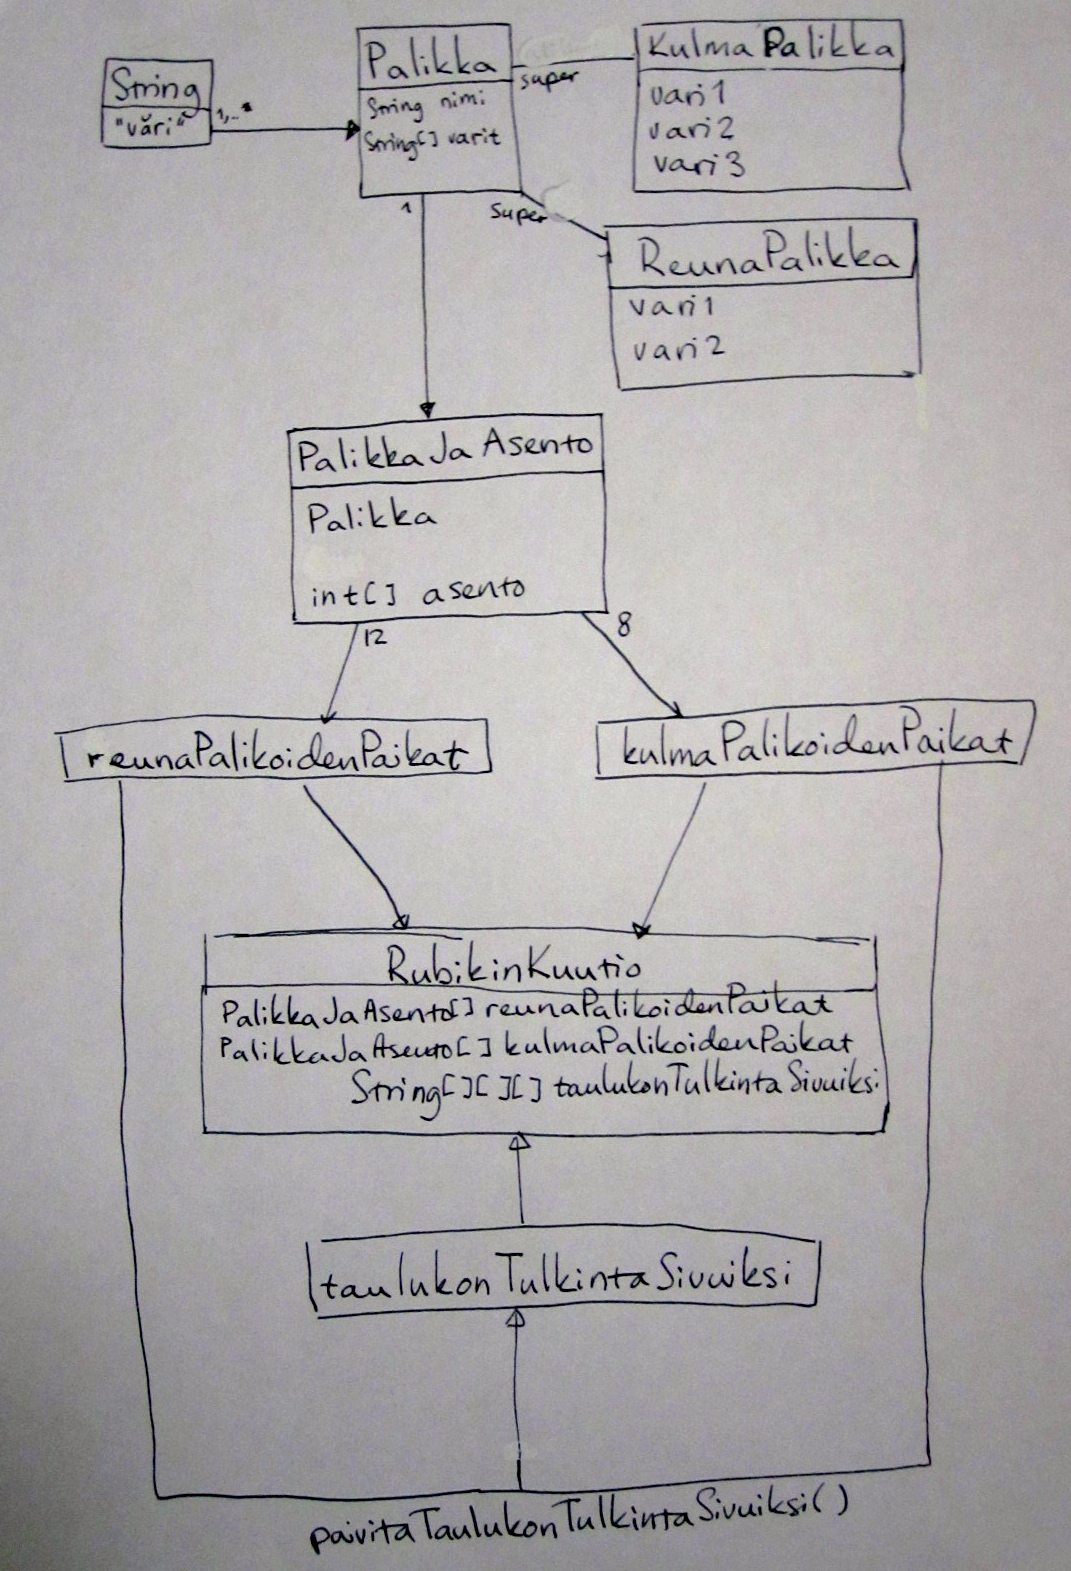 String
"väri"
1,..*
Palikka
String nimi
String[] varit
super
KulmaPalikka
vari1
vari2
vari3
1
super
ReunaPalikka
vari1
vari2
PalikkaJaAsento
Palikka
int[] asento
12
8
reunaPalikoidenPaikat
kulmaPalikoidenPaikat
RubikinKuutio
PalikkaJaAsento[] reunaPalikoidenPaikat
PalikkaJaAsento[] kulmaPalikoidenPaikat
String[][][] taulukonTulkintaSivuiksi
taulukonTulkintaSivuiksi
paivitaTaulukonTulkintaSivuiksi()